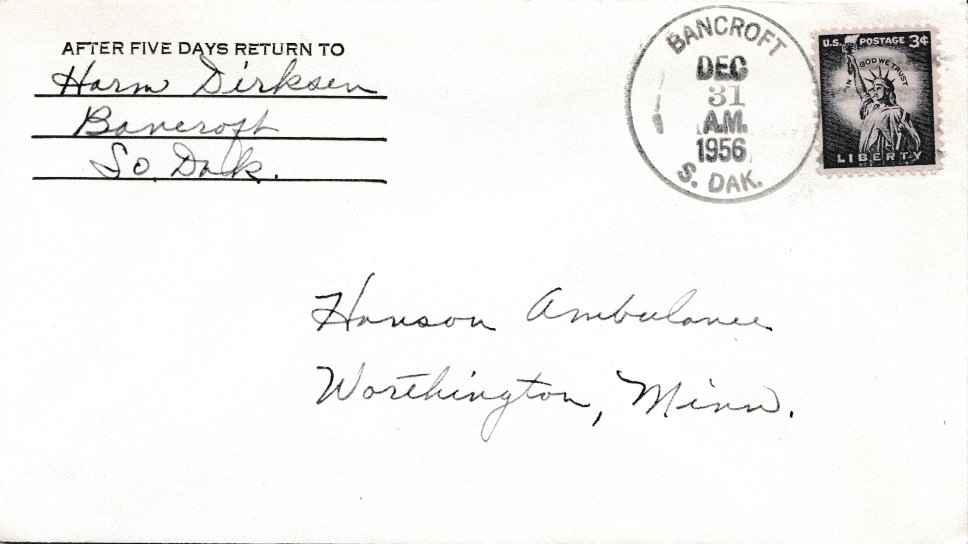 AFTER FIVE DAYS RETURN TO
Harm Dirksen
Bancroft
So. Dak.
BANCROFT
DEC
31
A.M.
1956
S. DAK.
U.S. POSTAGE 3¢
IN GOD WE TRUST
LIBERTY
Hanson Ambulance
Worthington, Minn.